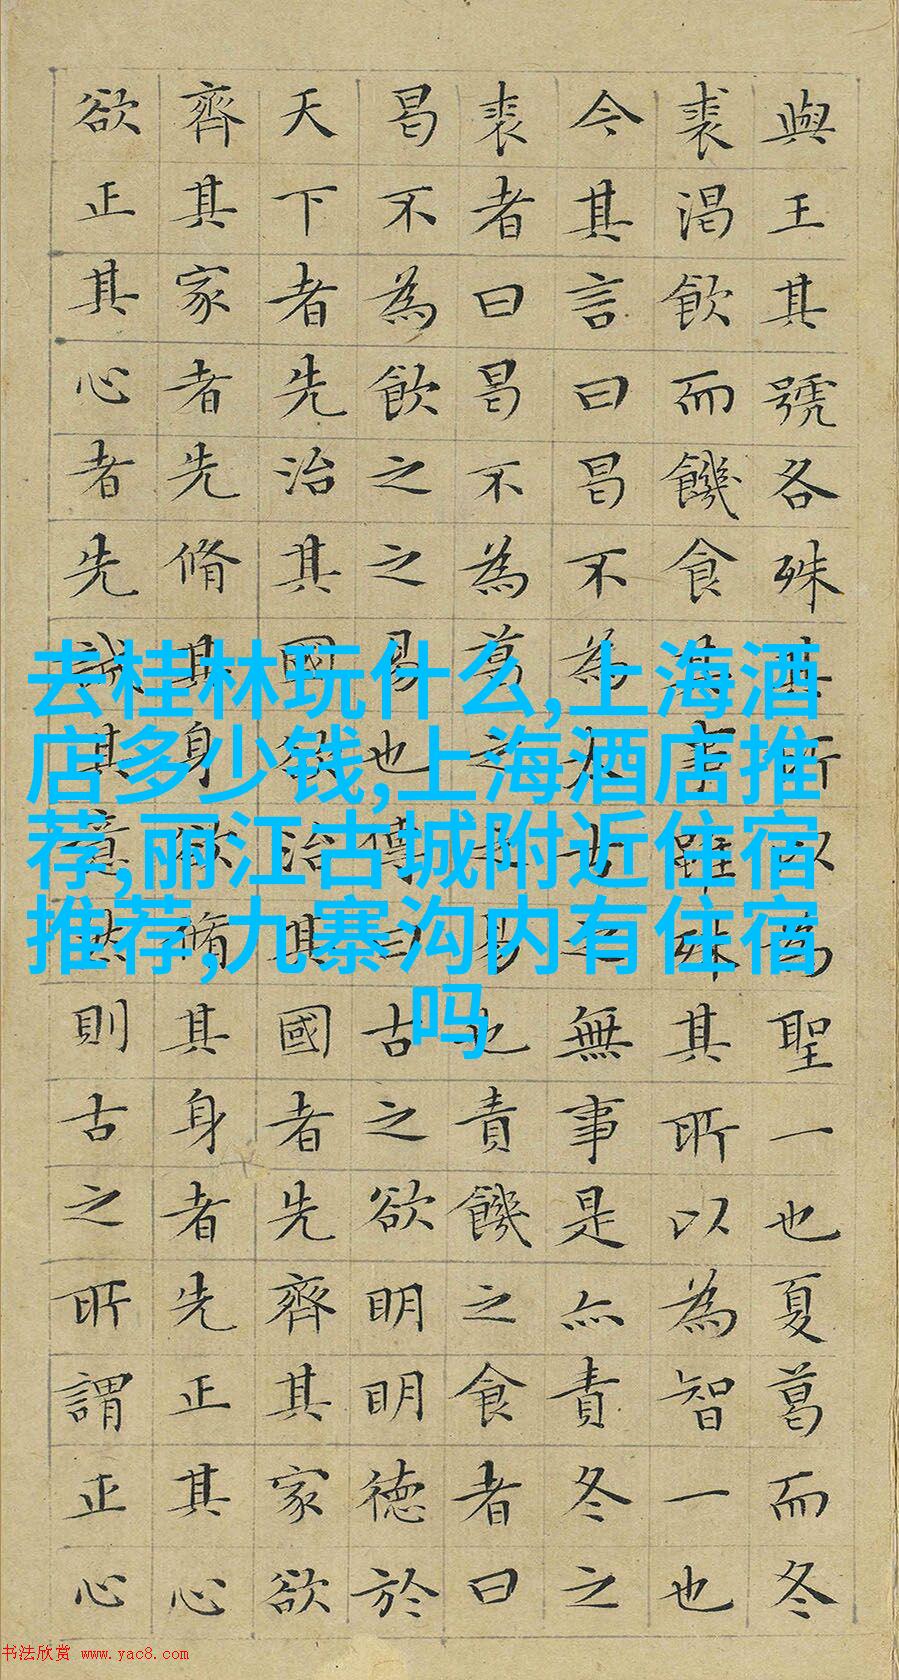 與王其號各殊其所以為聖一也夏葛而冬
裘渴飲而饑食其事雖殊其所以為智一也
今其言曰曷不為太古之無事是亦責冬之
裘者曰曷不為葛之之易也責饑之食者曰
曷不為飲之之易也傳曰古之欲明明德於
天下者先治其國欲治其國者先齊其家欲
齊其家者先脩其身欲脩其身者先正其心
欲正其心者先誠其意然則古之所謂正心
去桂林玩什么,上海酒
店多少钱,上海酒店推
荐,丽江古城附近住宿
推荐,九寨沟内有住宿
吗
书法欣赏 www.yac8.com